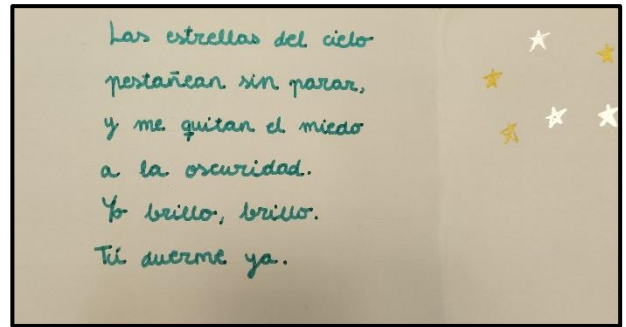 Las estrellas del cielo
pestañean sin parar,
y me quitan el miedo
a la oscuridad.
Yo brillo, brillo.
Tú duerme ya.